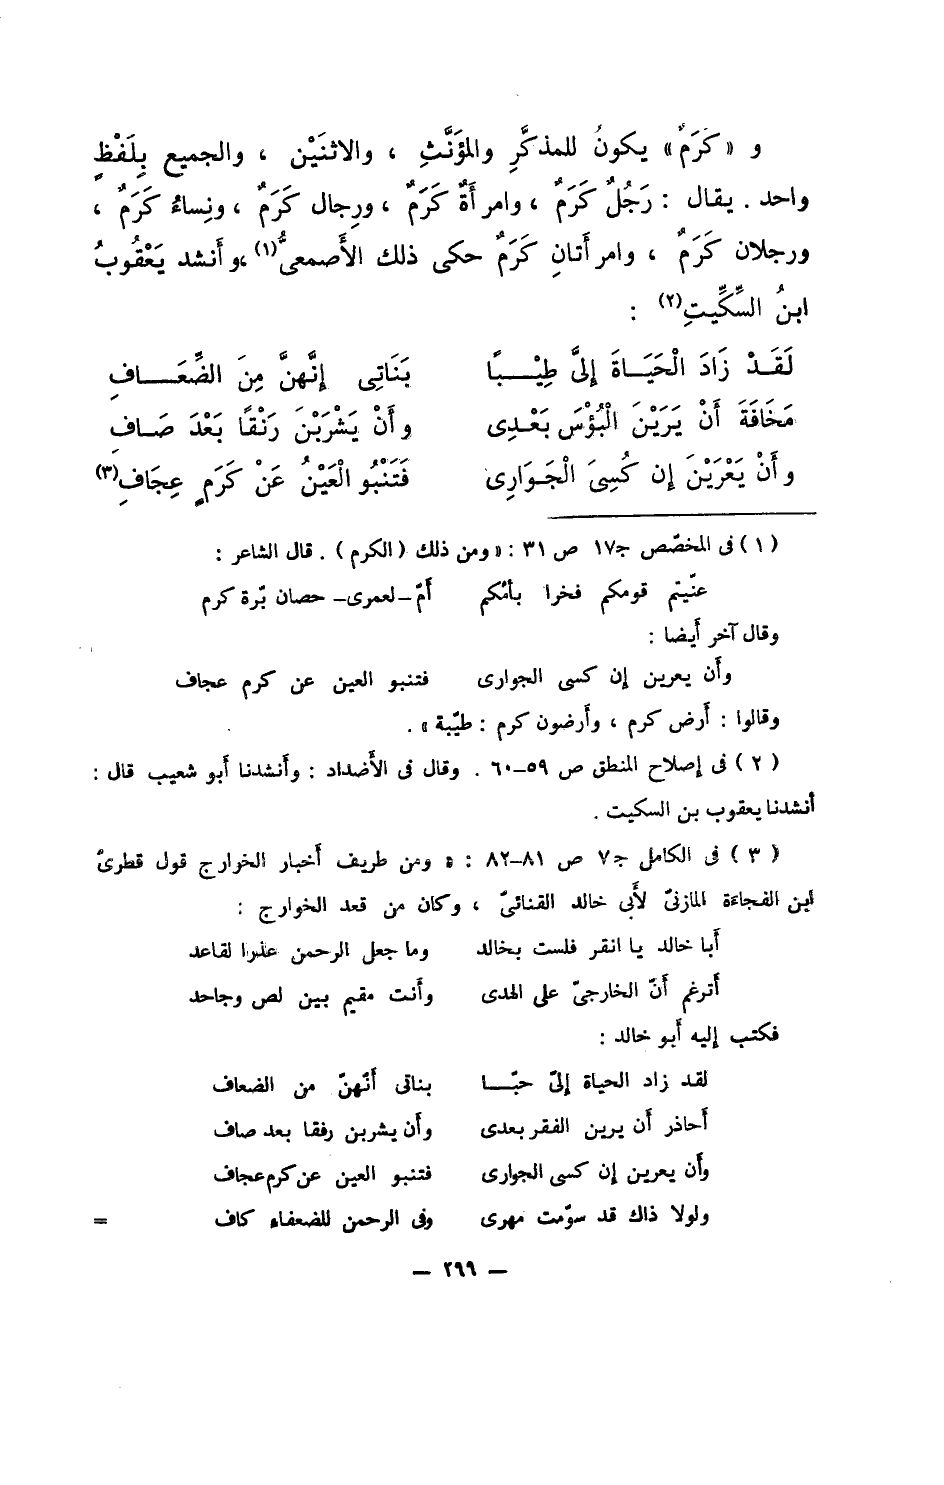 و « كَرَمٌ » يكونُ للمذكَّرِ والمؤَنَّثِ ، والاثنَيْن ، والجميع بِلَفْظٍ
واحد . يقال : رَجُلٌ كَرَمٌ ، وامرأَةٌ كَرَمٌ ، ورجال كَرَمٌ ، ونِساءٌ كَرَمٌ ،
ورجلان كَرَمٌ ، وامرأَتانِ كَرَمٌ حكى ذلك الأَصمعىُّ(١) ،وأَنشد يَعْقُوبُ
ابنُ السِّكِّيتِ(٢) :
لَقَـدْ زَادَ الْحَيَـاةَ إِلىَّ طِيْـــبًا بَنَاتِى إِنَّهنَّ مِنَ الضِّعَـــافِ
مَخَافَةَ أَنْ يَرَيْنَ الْبُؤْسَ بَعْـدِى وأَنْ يَشْرَبْنَ رَنْقًا بَعْدَ صَـافِ
وأَنْ يَعْرَيْنَ إِن كُسِىَ الْجَـوَارِى فَتَنْبُو الْعَيْنُ عَنْ كَرَمٍ عِجَافِ(٣)
( ١ ) فى المخصّص ج١٧ ص ٣١ : « ومن ذلك ( الكرم ) . قال الشاعر :
عنّيتم قومكم فخرا بأمّكم أمّ ـ لعمرى ـ حصان برّة كرم
وقال آخر أيضا :
وأن يعرين إن كسى الجوارى فتنبو العين عن كرم عجاف
وقالوا : أرض كرم ، وأرضون كرم : طيّبة » .
( ٢ ) فى إصلاح المنطق ص ٥٩–٦٠ . وقال فى الأضداد : وأنشدنا أبو شعيب قال :
أنشدنا يعقوب بن السكيت .
( ٣ ) فى الكامل ج٧ ص ٨١–٨٢ : « ومن طريف أخبار الخوارج قول قطرىّ
ابن الفجاءة المازنىّ لأبى خالد القنانىّ ، وكان من قعد الخوارج :
أبا خالد يا انفر فلست بخالد وما جعل الرحمن عذرا لقاعد
أتزعم أنّ الخارجىّ على الهدى وأنت مقيم بين لص وجاحد
فكتب إليه أبو خالد :
لقد زاد الحياة إلىّ حبّـــا بناتى أنّهنّ من الضعاف
أحاذر أن يرين الفقر بعدى وأن يشربن رنقا بعد صاف
وأن يعرين إن كسى الجوارى فتنبو العين عن كرم عجاف
ولولا ذاك قد سوّمت مهرى وفى الرحمن للضعفاء كاف =
– ٢٩٩ –